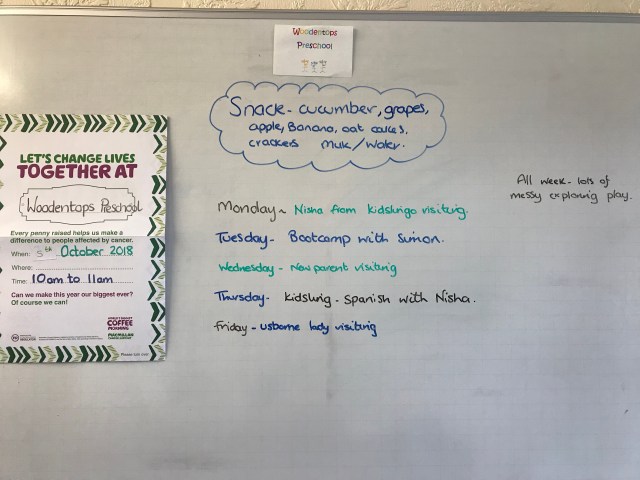 Woodentops
Preschool
Snack - cucumber, grapes,
apple, Banana, oat cakes,
crackers Milk/Water.
LET'S CHANGE LIVES
TOGETHER AT
Woodentops Preschool
Every penny raised helps us make a
difference to people affected by cancer.
When: 5th October 2018
Where:
Time: 10am to 11am
Can we make this year our biggest ever?
Of course we can!
WORLD'S BIGGEST
COFFEE
MORNING
MACMILLAN
CANCER SUPPORT
All week - lots of
messy exploring play.
Monday - Nisha from kidslingo visiting.
Tuesday - Bootcamp with Simon.
Wednesday - New parent visiting
Thursday - kidsling - Spanish with Nisha.
Friday - usborne lady visiting